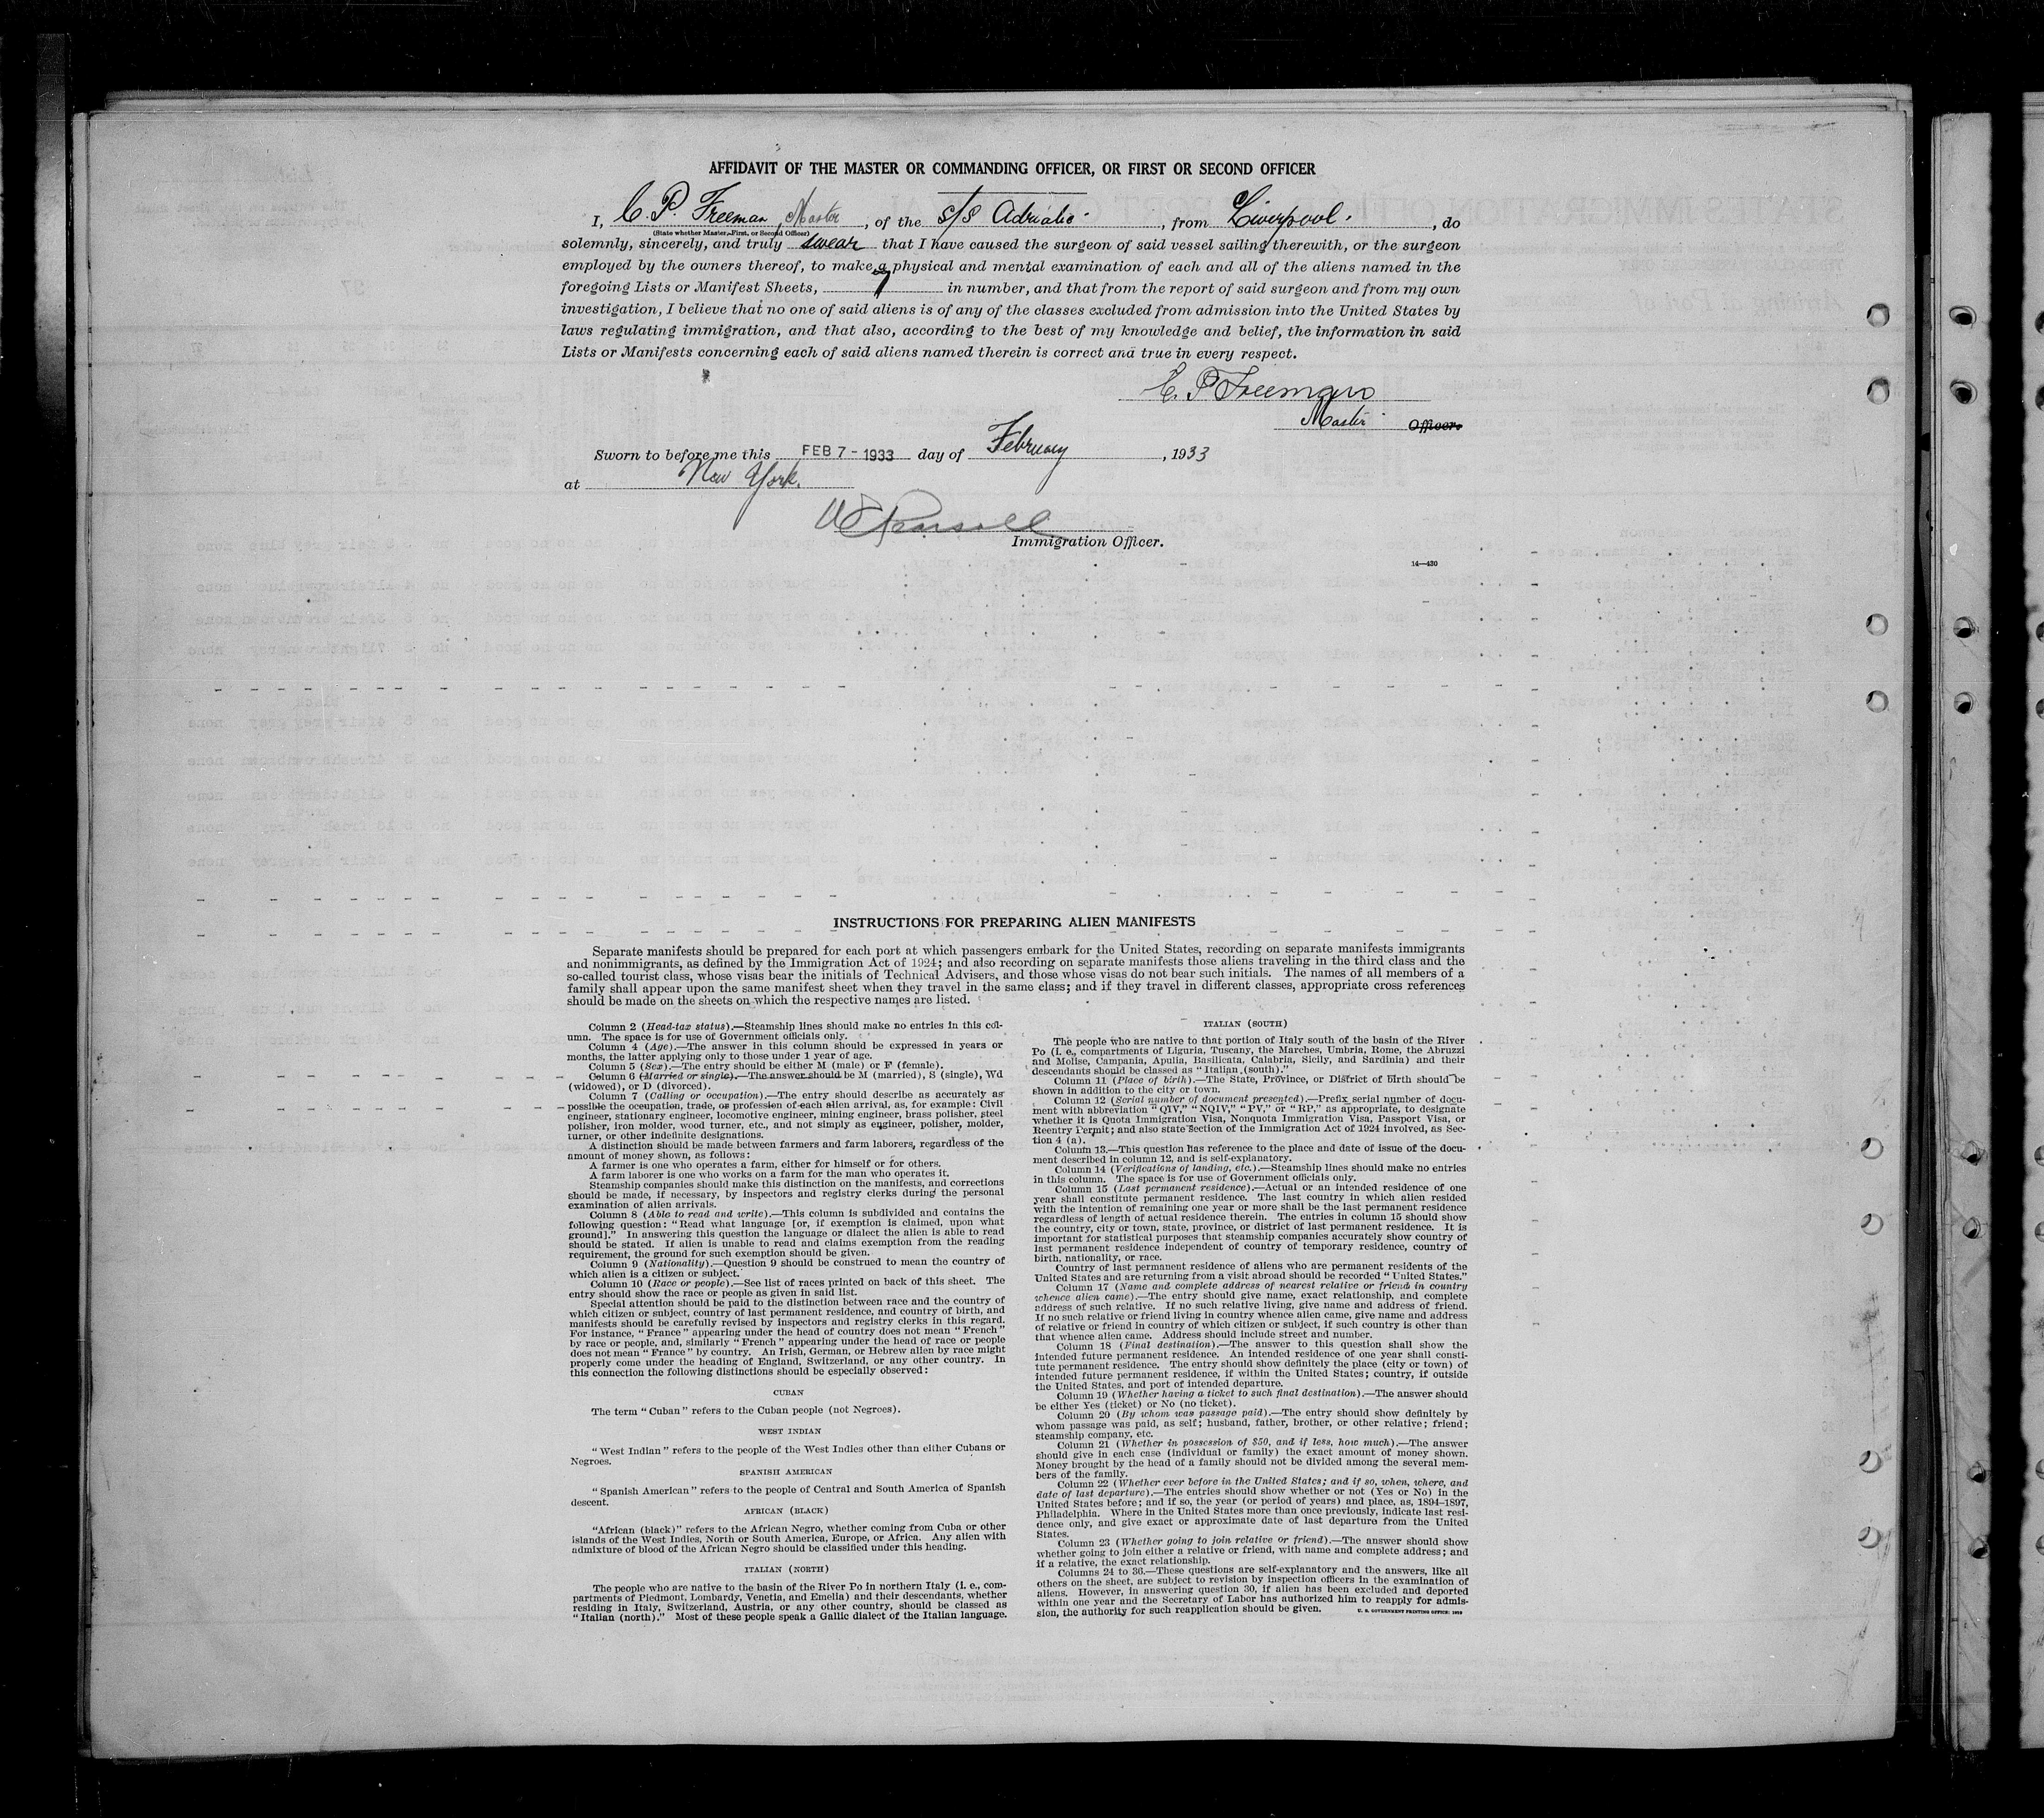 AFFIDAVIT OF THE MASTER OR COMMANDING OFFICER, OR FIRST OR SECOND OFFICER
I, C. P. Freeman, Master, of the s/s Adriatic, from Liverpool, do
(State whether Master, First, or Second Officer)
solemnly, sincerely, and truly swear that I have caused the surgeon of said vessel sailing therewith, or the surgeon
employed by the owners thereof, to make a physical and mental examination of each and all of the aliens named in the
foregoing Lists or Manifest Sheets, 7 in number, and that from the report of said surgeon and from my own
investigation, I believe that no one of said aliens is of any of the classes excluded from admission into the United States by
laws regulating immigration, and that also, according to the best of my knowledge and belief, the information in said
Lists or Manifests concerning each of said aliens named therein is correct and true in every respect.
C. P. Freeman
Master Officer.
Sworn to before me this FEB 7 - 1933 day of February, 1933
at New York.
Immigration Officer.
14—430
INSTRUCTIONS FOR PREPARING ALIEN MANIFESTS
Separate manifests should be prepared for each port at which passengers embark for the United States, recording on separate manifests immigrants
and nonimmigrants, as defined by the Immigration Act of 1924; and also recording on separate manifests those aliens traveling in the third class and the
so-called tourist class, whose visas bear the initials of Technical Advisers, and those whose visas do not bear such initials. The names of all members of a
family shall appear upon the same manifest sheet when they travel in the same class; and if they travel in different classes, appropriate cross references
should be made on the sheets on which the respective names are listed.
Column 2 (Head-tax status).—Steamship lines should make no entries in this col-
umn. The space is for use of Government officials only.
Column 4 (Age).—The answer in this column should be expressed in years or
months, the latter applying only to those under 1 year of age.
Column 5 (Sex).—The entry should be either M (male) or F (female).
Column 6 (Married or single).—The answer should be M (married), S (single), Wd
(widowed), or D (divorced).
Column 7 (Calling or occupation).—The entry should describe as accurately as
possible the occupation, trade, or profession of each alien arrival, as, for example: Civil
engineer, stationary engineer, locomotive engineer, mining engineer, brass polisher, steel
polisher, iron molder, wood turner, etc., and not simply as engineer, polisher, molder,
turner, or other indefinite designations.
A distinction should be made between farmers and farm laborers, regardless of the
amount of money shown, as follows:
A farmer is one who operates a farm, either for himself or for others.
A farm laborer is one who works on a farm for the man who operates it.
Steamship companies should make this distinction on the manifests, and corrections
should be made, if necessary, by inspectors and registry clerks during the personal
examination of alien arrivals.
Column 8 (Able to read and write).—This column is subdivided and contains the
following question: "Read what language [or, if exemption is claimed, upon what
ground]." In answering this question the language or dialect the alien is able to read
should be stated. If alien is unable to read and claims exemption from the reading
requirement, the ground for such exemption should be given.
Column 9 (Nationality).—Question 9 should be construed to mean the country of
which alien is a citizen or subject.
Column 10 (Race or people).—See list of races printed on back of this sheet. The
entry should show the race or people as given in said list.
Special attention should be paid to the distinction between race and the country of
which citizen or subject, country of last permanent residence, and country of birth, and
manifests should be carefully revised by inspectors and registry clerks in this regard.
For instance, "France" appearing under the head of country does not mean "French"
by race or people, and, similarly "French" appearing under the head of race or people
does not mean "France" by country. An Irish, German, or Hebrew alien by race might
properly come under the heading of England, Switzerland, or any other country. In
this connection the following distinctions should be especially observed:
CUBAN
The term "Cuban" refers to the Cuban people (not Negroes).
WEST INDIAN
"West Indian" refers to the people of the West Indies other than either Cubans or
Negroes.
SPANISH AMERICAN
"Spanish American" refers to the people of Central and South America of Spanish
descent.
AFRICAN (BLACK)
"African (black)" refers to the African Negro, whether coming from Cuba or other
islands of the West Indies, North or South America, Europe, or Africa. Any alien with
admixture of blood of the African Negro should be classified under this heading.
ITALIAN (NORTH)
The people who are native to the basin of the River Po in northern Italy (i. e., com-
partments of Piedmont, Lombardy, Venetia, and Emelia) and their descendants, whether
residing in Italy, Switzerland, Austria, or any other country, should be classed as
"Italian (north)." Most of these people speak a Gallic dialect of the Italian language.
ITALIAN (SOUTH)
The people who are native to that portion of Italy south of the basin of the River
Po (i. e., compartments of Liguria, Tuscany, the Marches, Umbria, Rome, the Abruzzi
and Molise, Campania, Apulia, Basilicata, Calabria, Sicily, and Sardinia) and their
descendants should be classed as "Italian (south)."
Column 11 (Place of birth).—The State, Province, or District of birth should be
shown in addition to the city or town.
Column 12 (Serial number of document presented).—Prefix serial number of docu-
ment with abbreviation "QIV," "NQIV," "PV," or "RP," as appropriate, to designate
whether it is Quota Immigration Visa, Nonquota Immigration Visa, Passport Visa, or
Reentry Permit; and also state section of the Immigration Act of 1924 involved, as Sec-
tion 4 (a).
Column 13.—This question has reference to the place and date of issue of the docu-
ment described in column 12, and is self-explanatory.
Column 14 (Verifications of landing, etc.).—Steamship lines should make no entries
in this column. The space is for use of Government officials only.
Column 15 (Last permanent residence).—Actual or an intended residence of one
year shall constitute permanent residence. The last country in which alien resided
with the intention of remaining one year or more shall be the last permanent residence
regardless of length of actual residence therein. The entries in column 15 should show
the country, city or town, state, province, or district of last permanent residence. It is
important for statistical purposes that steamship companies accurately show country of
last permanent residence independent of country of temporary residence, country of
birth, nationality, or race.
Country of last permanent residence of aliens who are permanent residents of the
United States and are returning from a visit abroad should be recorded "United States."
Column 17 (Name and complete address of nearest relative or friend in country
whence alien came).—The entry should give name, exact relationship, and complete
address of such relative. If no such relative living, give name and address of friend.
If no such relative or friend living in country whence alien came, give name and address
of relative or friend in country of which citizen or subject, if such country is other than
that whence alien came. Address should include street and number.
Column 18 (Final destination).—The answer to this question shall show the
intended future permanent residence. An intended residence of one year shall consti-
tute permanent residence. The entry should show definitely the place (city or town) of
intended future permanent residence, if within the United States; country, if outside
the United States, and port of intended departure.
Column 19 (Whether having a ticket to such final destination).—The answer should
be either Yes (ticket) or No (no ticket).
Column 20 (By whom was passage paid).—The entry should show definitely by
whom passage was paid, as self; husband, father, brother, or other relative; friend;
steamship company, etc.
Column 21 (Whether in possession of $50, and if less, how much).—The answer
should give in each case (individual or family) the exact amount of money shown.
Money brought by the head of a family should not be divided among the several mem-
bers of the family.
Column 22 (Whether ever before in the United States; and if so, when, where, and
date of last departure).—The entries should show whether or not (Yes or No) in the
United States before; and if so, the year (or period of years) and place, as, 1894–1897,
Philadelphia. Where in the United States more than once previously, indicate last resi-
dence only, and give exact or approximate date of last departure from the United
States.
Column 23 (Whether going to join relative or friend).—The answer should show
whether going to join either a relative or friend, with name and complete address; and
if a relative, the exact relationship.
Columns 24 to 36.—These questions are self-explanatory and the answers, like all
others on the sheet, are subject to revision by inspection officers in the examination of
aliens. However, in answering question 30, if alien has been excluded and deported
within one year and the Secretary of Labor has authorized him to reapply for admis-
sion, the authority for such reapplication should be given.
U. S. GOVERNMENT PRINTING OFFICE: 1929